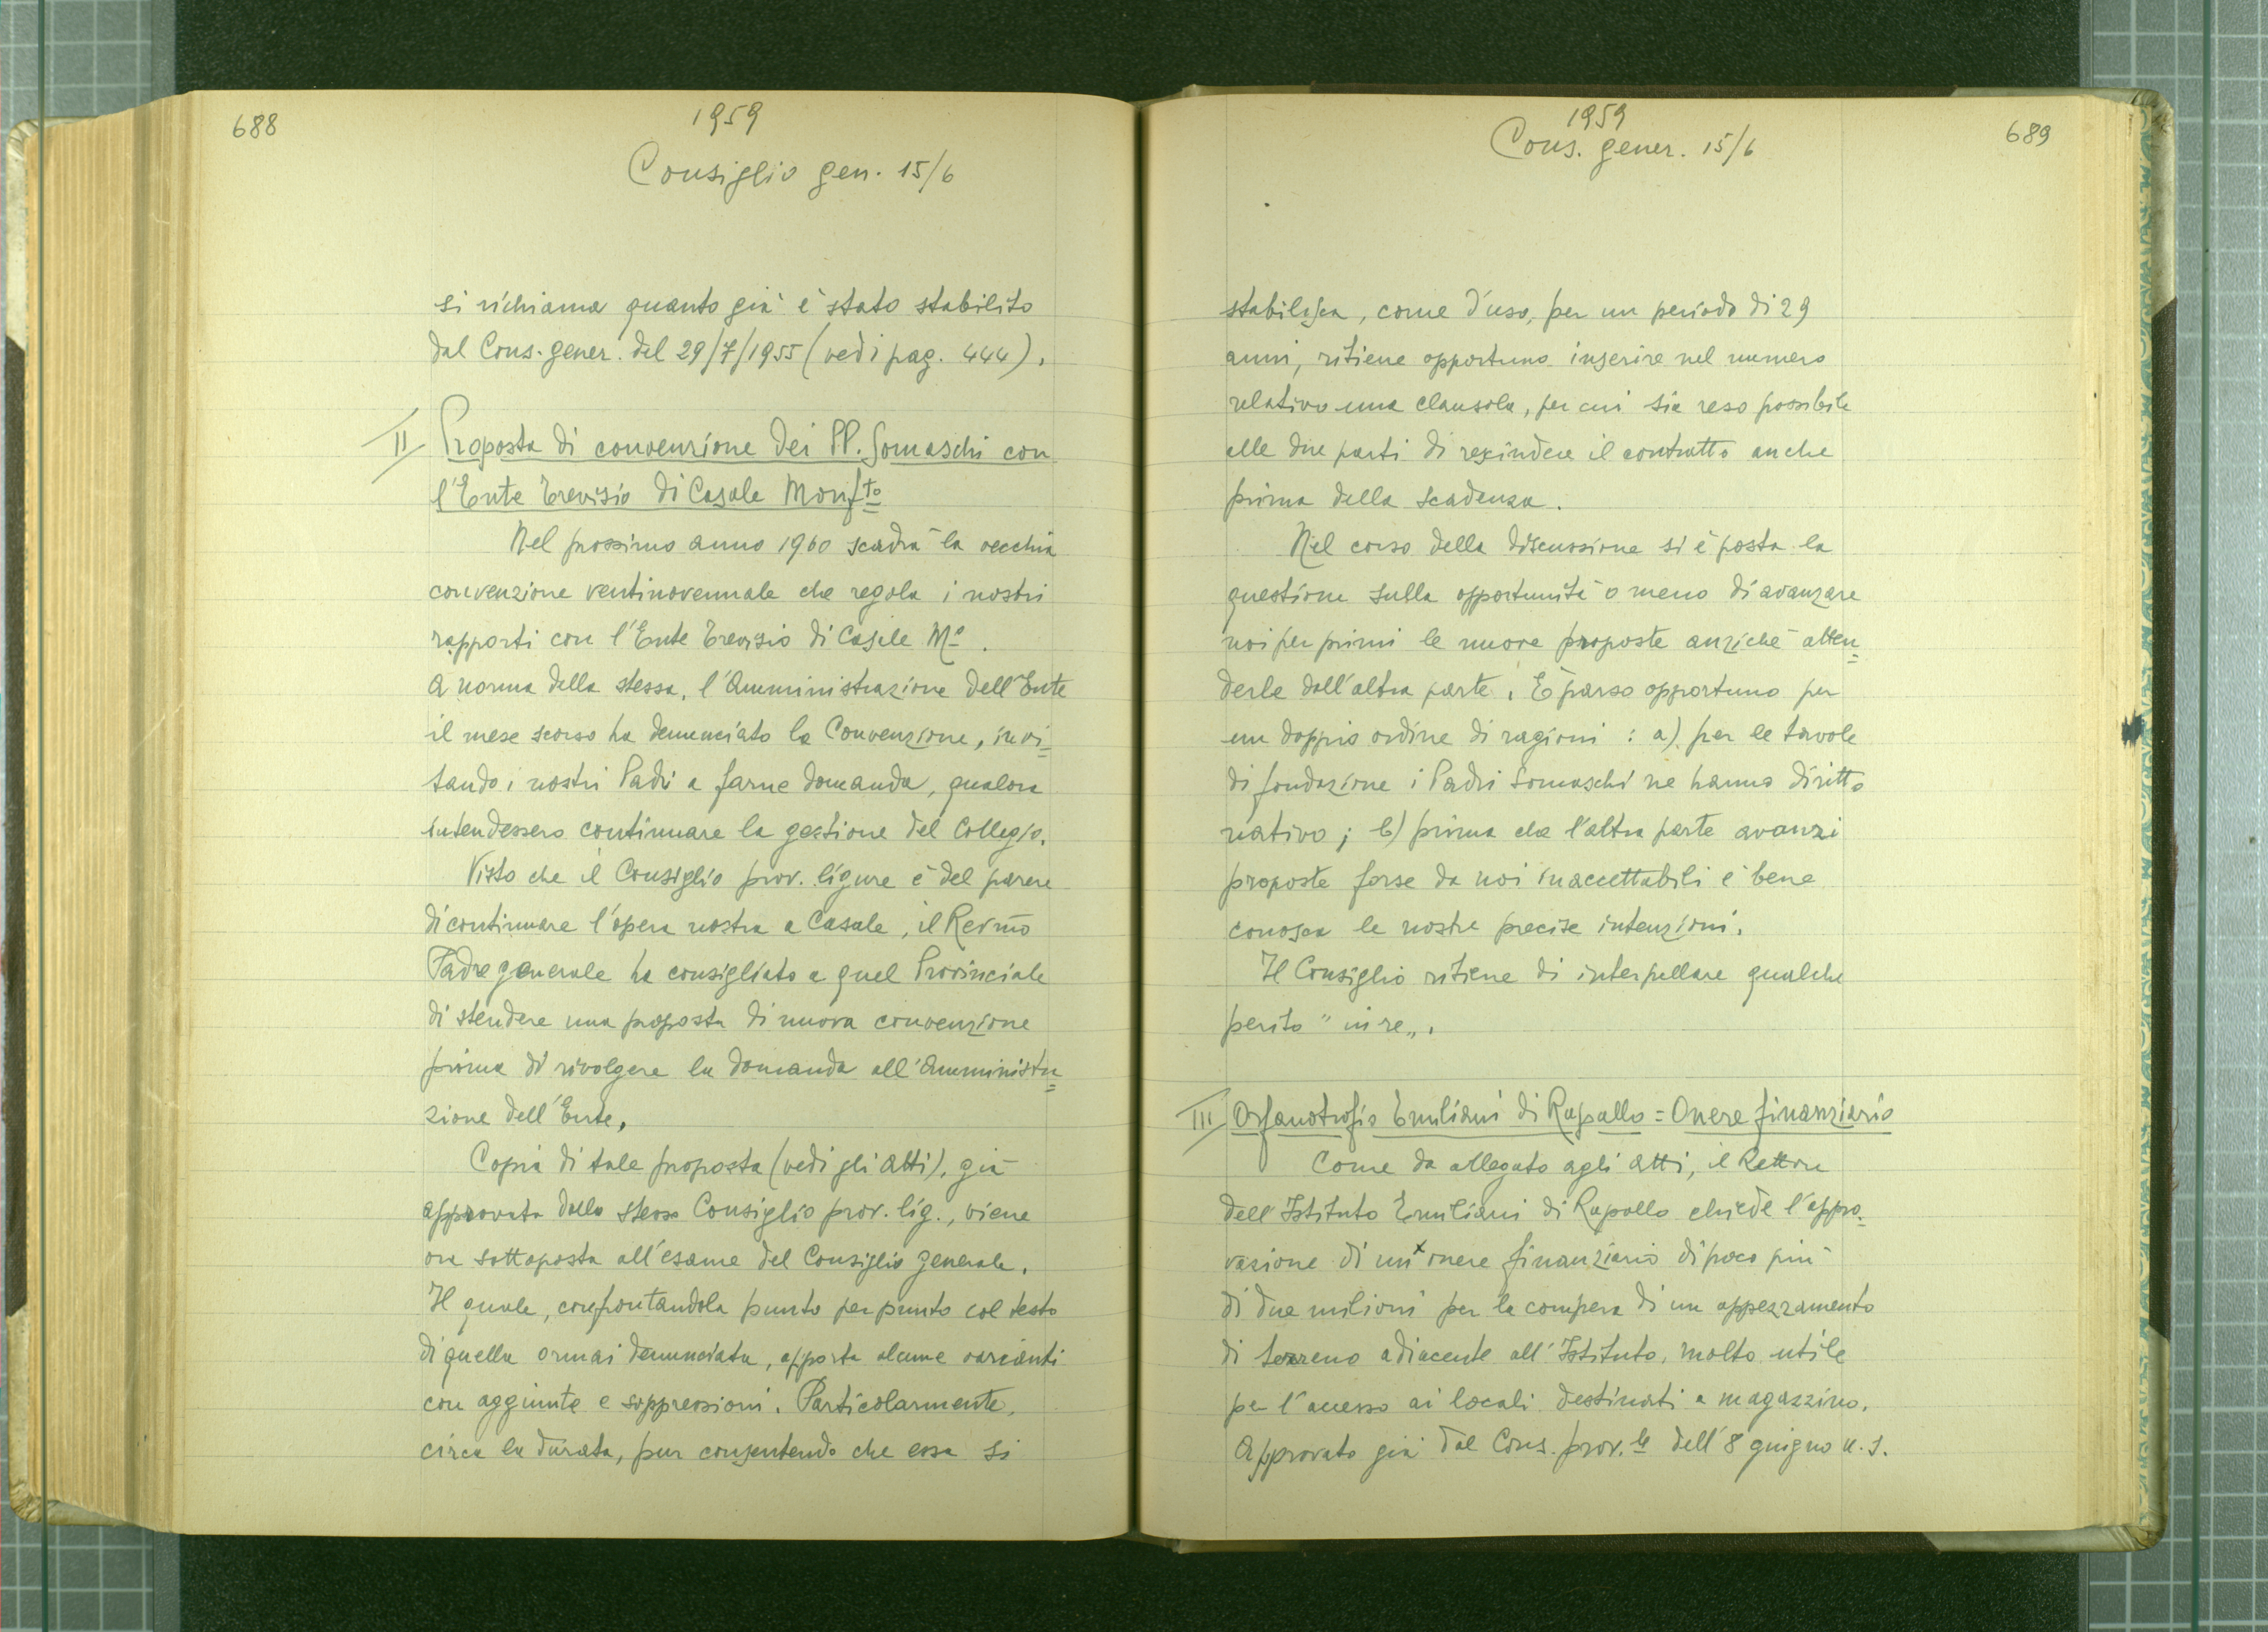 688
1959
Consiglio gen. 15/6
si richiama quanto già è stato stabilito
dal Cons. gener. del 29/7/1955 (vedi pag. 444).
II Proposta di convenzione dei PP. Somaschi con
l'Ente Trevisio di Casale Monf.to
Nel prossimo anno 1960 scadrà la vecchia
convenzione ventinovennale che regola i nostri
rapporti con l'Ente Trevisio di Casale Mº.
A norma della stessa, l'Amministrazione dell'Ente
il mese scorso ha denunciato la Convenzione, invi=
tando i nostri Padri a farne domanda, qualora
intendessero continuare la gestione del Collegio.
Visto che il Consiglio prov. ligure è del parere
di continuare l'opera nostra a Casale, il Rev.mo
Padre generale ha consigliato a quel Provinciale
di stendere una proposta di nuova convenzione
prima di rivolgere la domanda all'Amministra=
zione dell'Ente.
Copia di tale proposta (vedi gli Atti), già
approvata dallo stesso Consiglio prov. lig., viene
ora sottoposta all'esame del Consiglio generale.
Il quale, confrontandola punto per punto col testo
di quella ormai denunciata, apporta alcune varianti
con aggiunte e soppressioni. Particolarmente,
circa la durata, pur consentendo che essa si
1959
Cons. gener. 15/6
689
stabilisca, come d'uso, per un periodo di 29
anni, ritiene opportuno inserire nel numero
relativo una clausola, per cui sia reso possibile
alle due parti di rescindere il contratto anche
prima della scadenza.
Nel corso della discussione si è posta la
questione sulla opportunità o meno di avanzare
noi per primi le nuove proposte anziché atten=
derle dall'altra parte. È parso opportuno per
un doppio ordine di ragioni: a) per le tavole
di fondazione i Padri Somaschi ne hanno diritto
nativo; b) prima che l'altra parte avanzi
proposte forse da noi inaccettabili è bene
conosca le nostre precise intenzioni.
Il Consiglio ritiene di interpellare qualche
perito "in re".
III Orfanotrofio Emiliani di Rapallo = Onere finanziario
Come da allegato agli Atti, il Rettore
dell'Istituto Emiliani di Rapallo chiede l'appro=
vazione di un x onere finanziario di poco più
di due milioni per la compera di un appezzamento
di terreno adiacente all'Istituto, molto utile
per l'accesso ai locali destinati a magazzino.
Approvato già dal Cons. prov.le dell'8 giugno u.s.